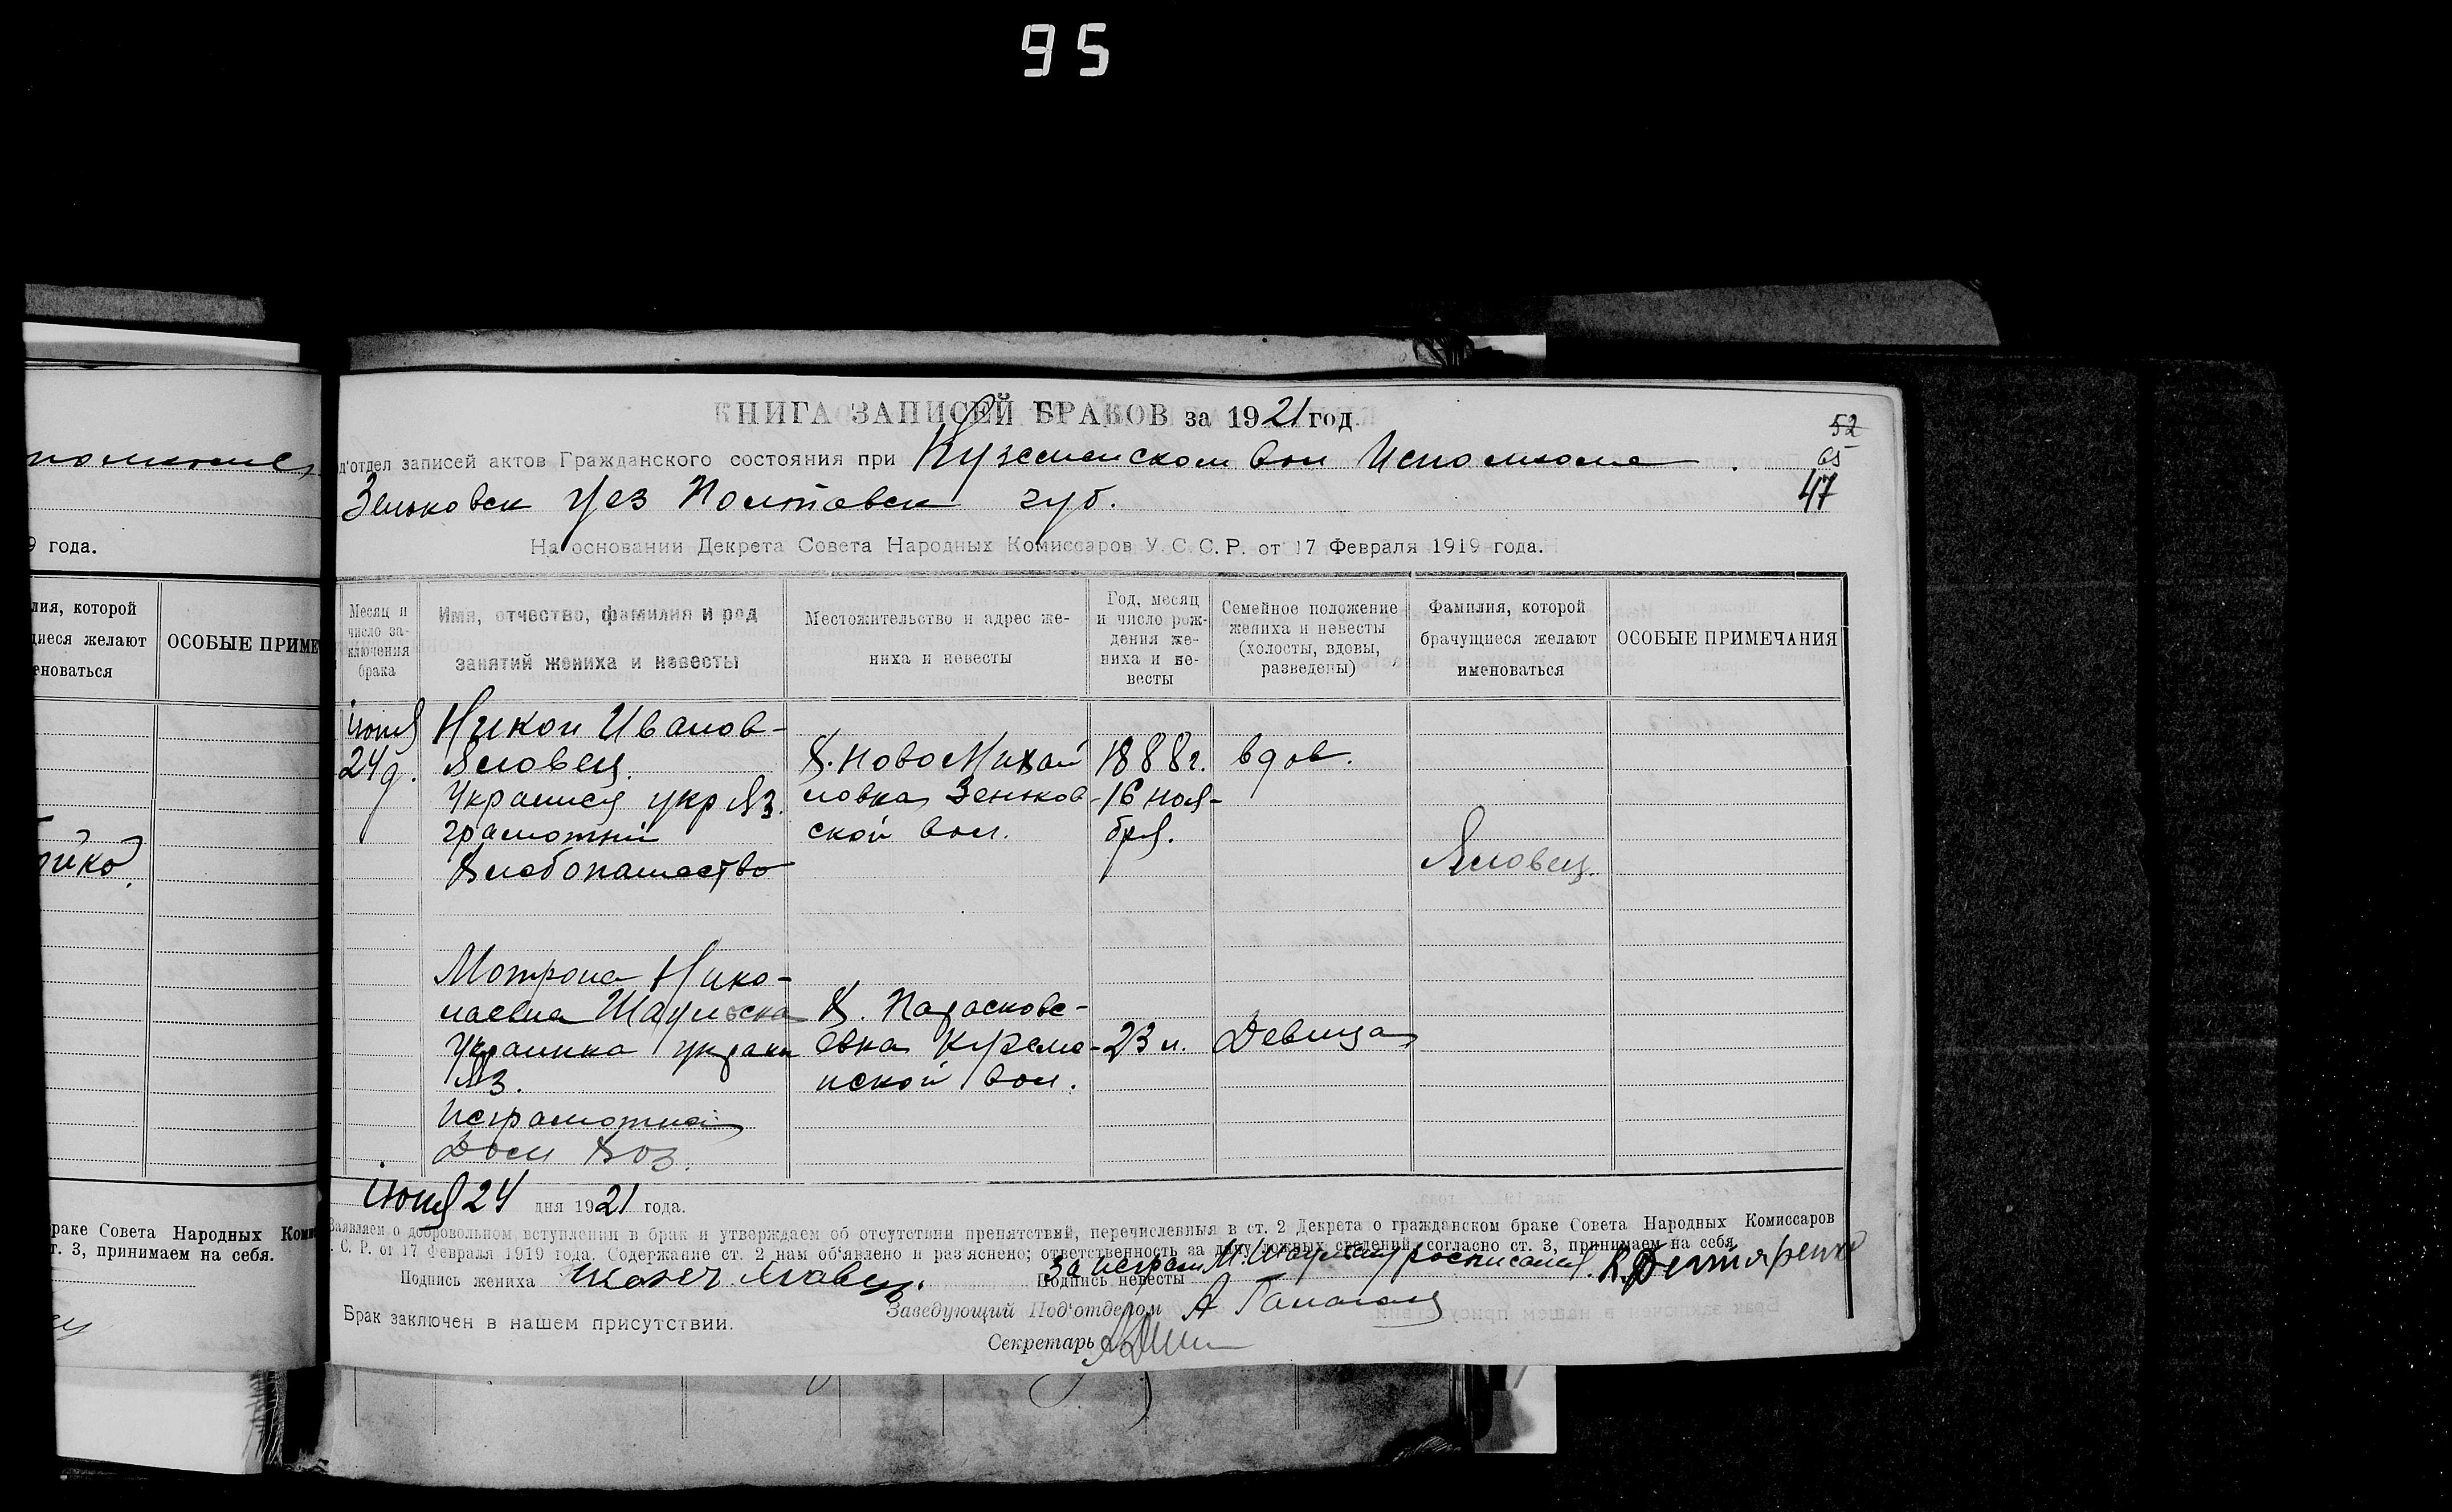 95
помкоме
9 года.
лия, которой
щиеся желают
еноваться
ОСОБЫЕ ПРИМЕ
раке Совета Народных Коми
т. 3, принимаем на себя.
КНИГА ЗАПИСЕЙ БРАКОВ за 1921 год.
52
65
47
д'отдел записей актов Гражданского состояния при Куземенском вол Исполкоме.
Зеньковск уез Полтавск губ.
На основании Декрета Совета Народных Комиссаров У. С. С. Р. от 17 Февраля 1919 года.
Месяц и число заключения брака
Имя, отчество, фамилия и род занятий жениха и невесты
Местожительство и адрес жениха и невесты
Год, месяц и число рождения жениха и невесты
Семейное положение жениха и невесты (холосты, вдовы, разведены)
Фамилия, которой брачущиеся желают именоваться
ОСОБЫЕ ПРИМЕЧАНИЯ
июня
24 д.
Никон Иванов-
Яловец.
Украинец укр яз.
грамотный
Хлебопашество
Х. Ново Михай
ловка Зеньков-
ской вол.
1888 г.
16 ноя-
бря.
вдов.
Яловец.
Мотрона Нико-
лаевна
Украинка украин
яз.
неграмотная
Дом хоз.
Х. Парасково-
евка Куземе-
нской вол.
23 л.
Девица
июня 24 дня 1921 года.
Заявляем о добровольном вступлении в брак и утверждаем об отсутствии препятствий, перечисленных в ст. 2 Декрета о гражданском браке Совета Народных Комиссаров
. С. Р. от 17 Февраля 1919 года. Содержание ст. 2 нам об'явлено и раз'яснено; ответственность за дачу ложных сведений, согласно ст. 3, принимаем на себя.
Подпись жениха
Подпись невесты за неграм М. росписался К. Дегтяренко
Заведующий Под'отделом А
Брак заключен в нашем присутствии.
Секретарь